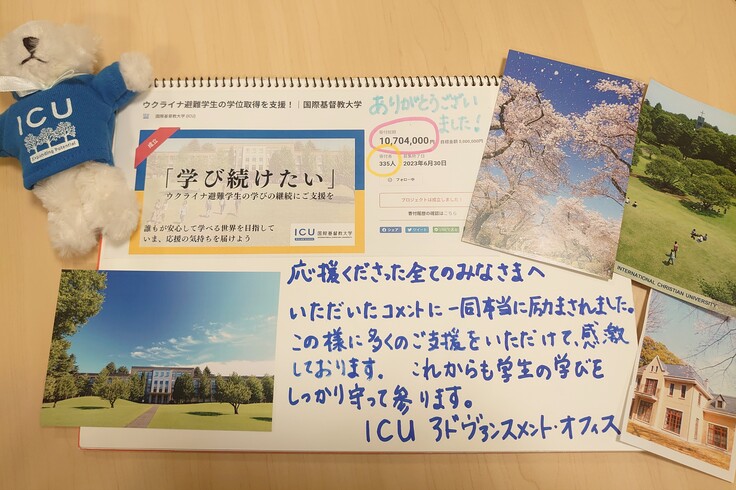 ICU
Expanding Potential
ウクライナ避難学生の学位取得を支援!|国際基督教大学
国際基督教大学
成立
「学び続けたい」
ウクライナ避難学生の学びの継続にご支援を
誰もが安心して学べる世界を目指して
いま、応援の気持ちを届けよう
ICU 国際基督教大学
ありがとうござい
ました!
寄付総額
10,704,000円
寄付者
335人
2023年6月30日
フォロー中
プロジェクトは成立しました!
寄付履歴の確認はこちら
シェア
ツイート
INTERNATIONAL CHRISTIAN UNIVERSITY
応援くださった全てのみなさまへ
いただいたコメントに一同本当に励まされました。
この様に多くのご支援をいただけて、感激
しております。これからも学生の学びを
しっかり守って参ります。
ICU アドヴァンスメント・オフィス